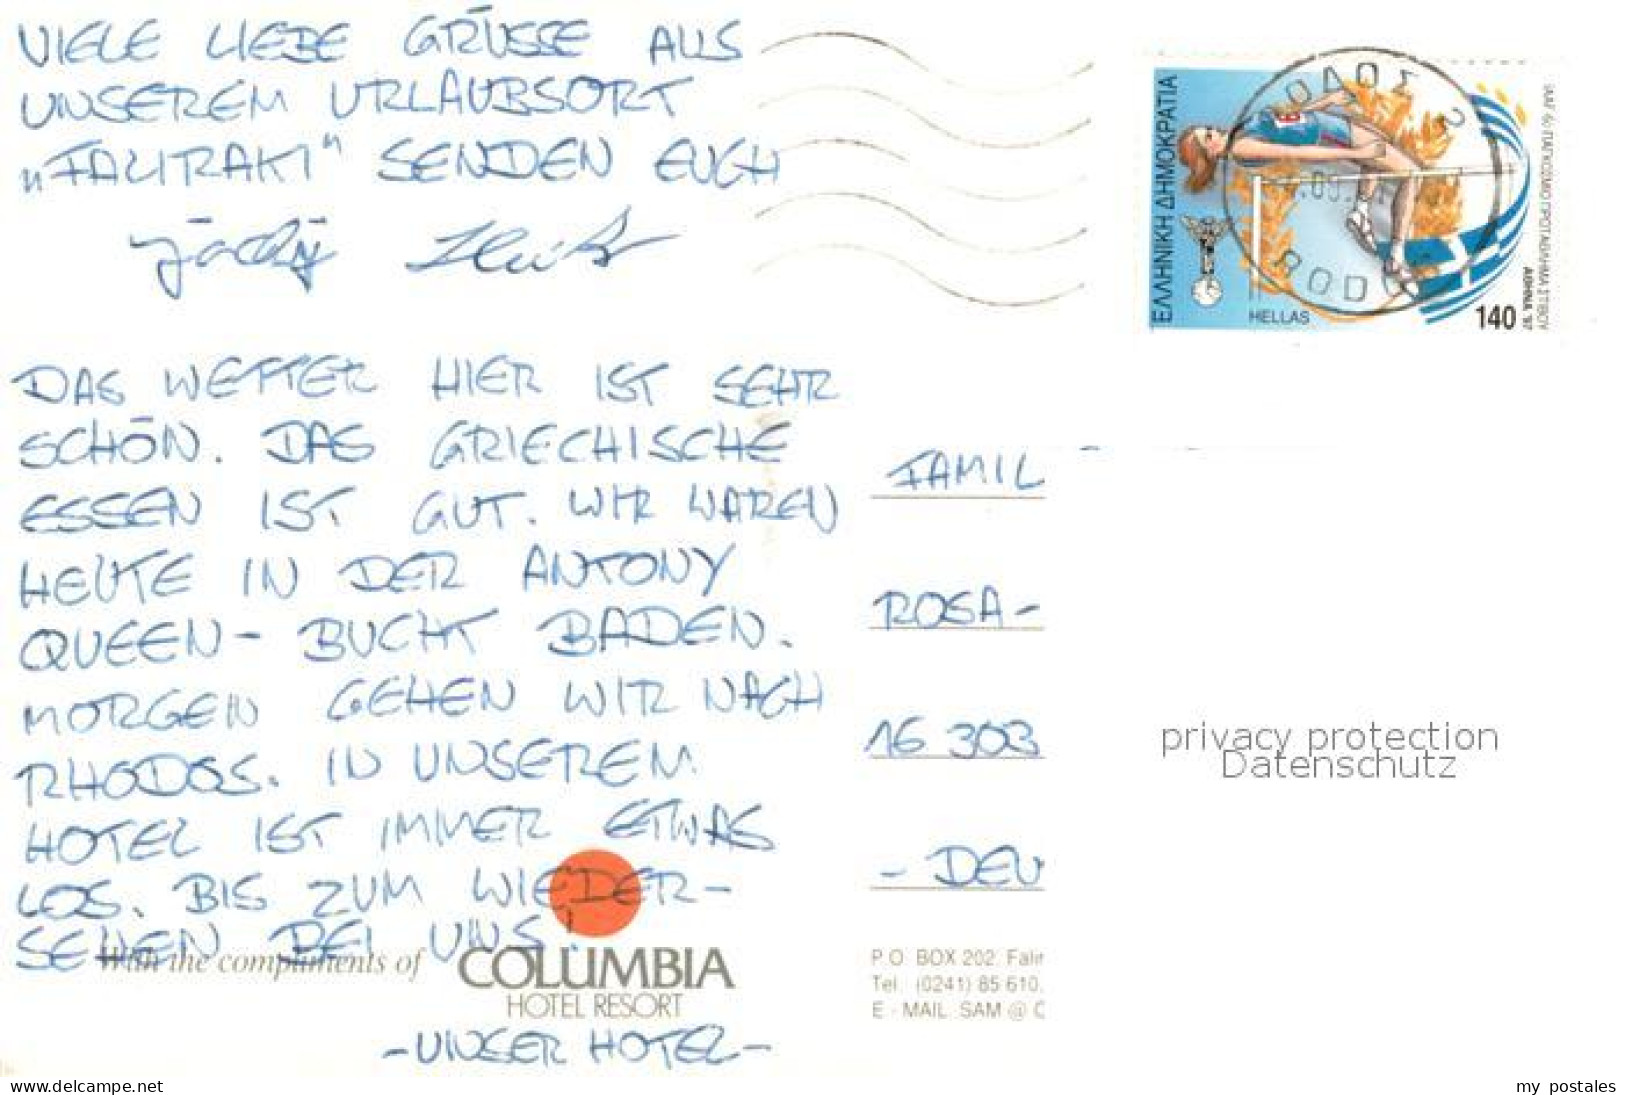 VIELE LIEBE GRÜSSE AUS
UNSEREM URLAUBSORT
„FALIRAKI" SENDEN EUCH
DAS WETTER HIER IST SEHR
SCHÖN. DAS GRIECHISCHE
ESSEN IST GUT. WIR WAREN
HEUTE IN DER ANTONY
QUEEN- BUCHT BADEN.
MORGEN GEHEN WIR NACH
RHODOS. IN UNSEREM
HOTEL IST IMMER ETWAS
LOS. BIS ZUM WIEDER-
SEHEN BEI UNS!
With the compliments of
COLUMBIA
HOTEL RESORT
-UNSER HOTEL-
ΕΛΛΗΝΙΚΗ ΔΗΜΟΚΡΑΤΙΑ
HELLAS
140
ΙΑΑΓ 6ο ΠΑΓΚΟΣΜΙΟ ΠΡΩΤΑΘΛΗΜΑ ΣΤΙΒΟΥ
ΑΘΗΝΑ '97
ΡΟΔΟΣ 2
RODOS
FAMIL
ROSA-
16 303
- DEU
privacy protection
Datenschutz
P.O. BOX 202. Falir
Tel. (0241) 85 610.
E - MAIL SAM @ C
www.delcampe.net
my_postales